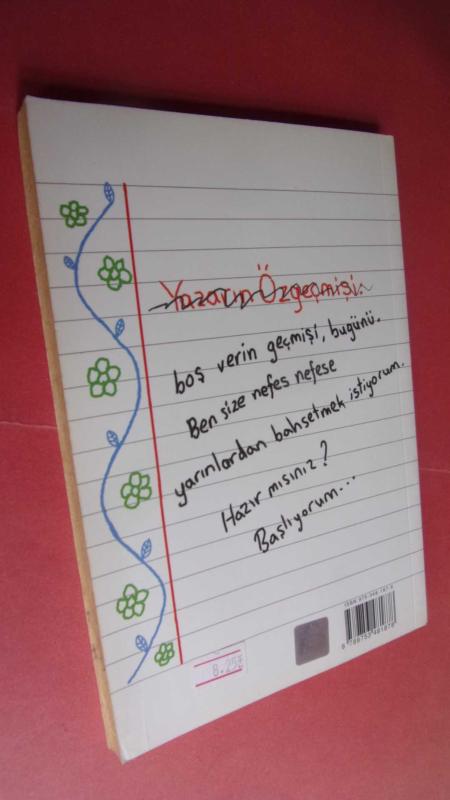 Yazarın Özgeçmişi.
boş verin geçmişi, bugünü.
Ben size nefes nefese
yarınlardan bahsetmek istiyorum.
Hazır mısınız?
Başlıyorum...